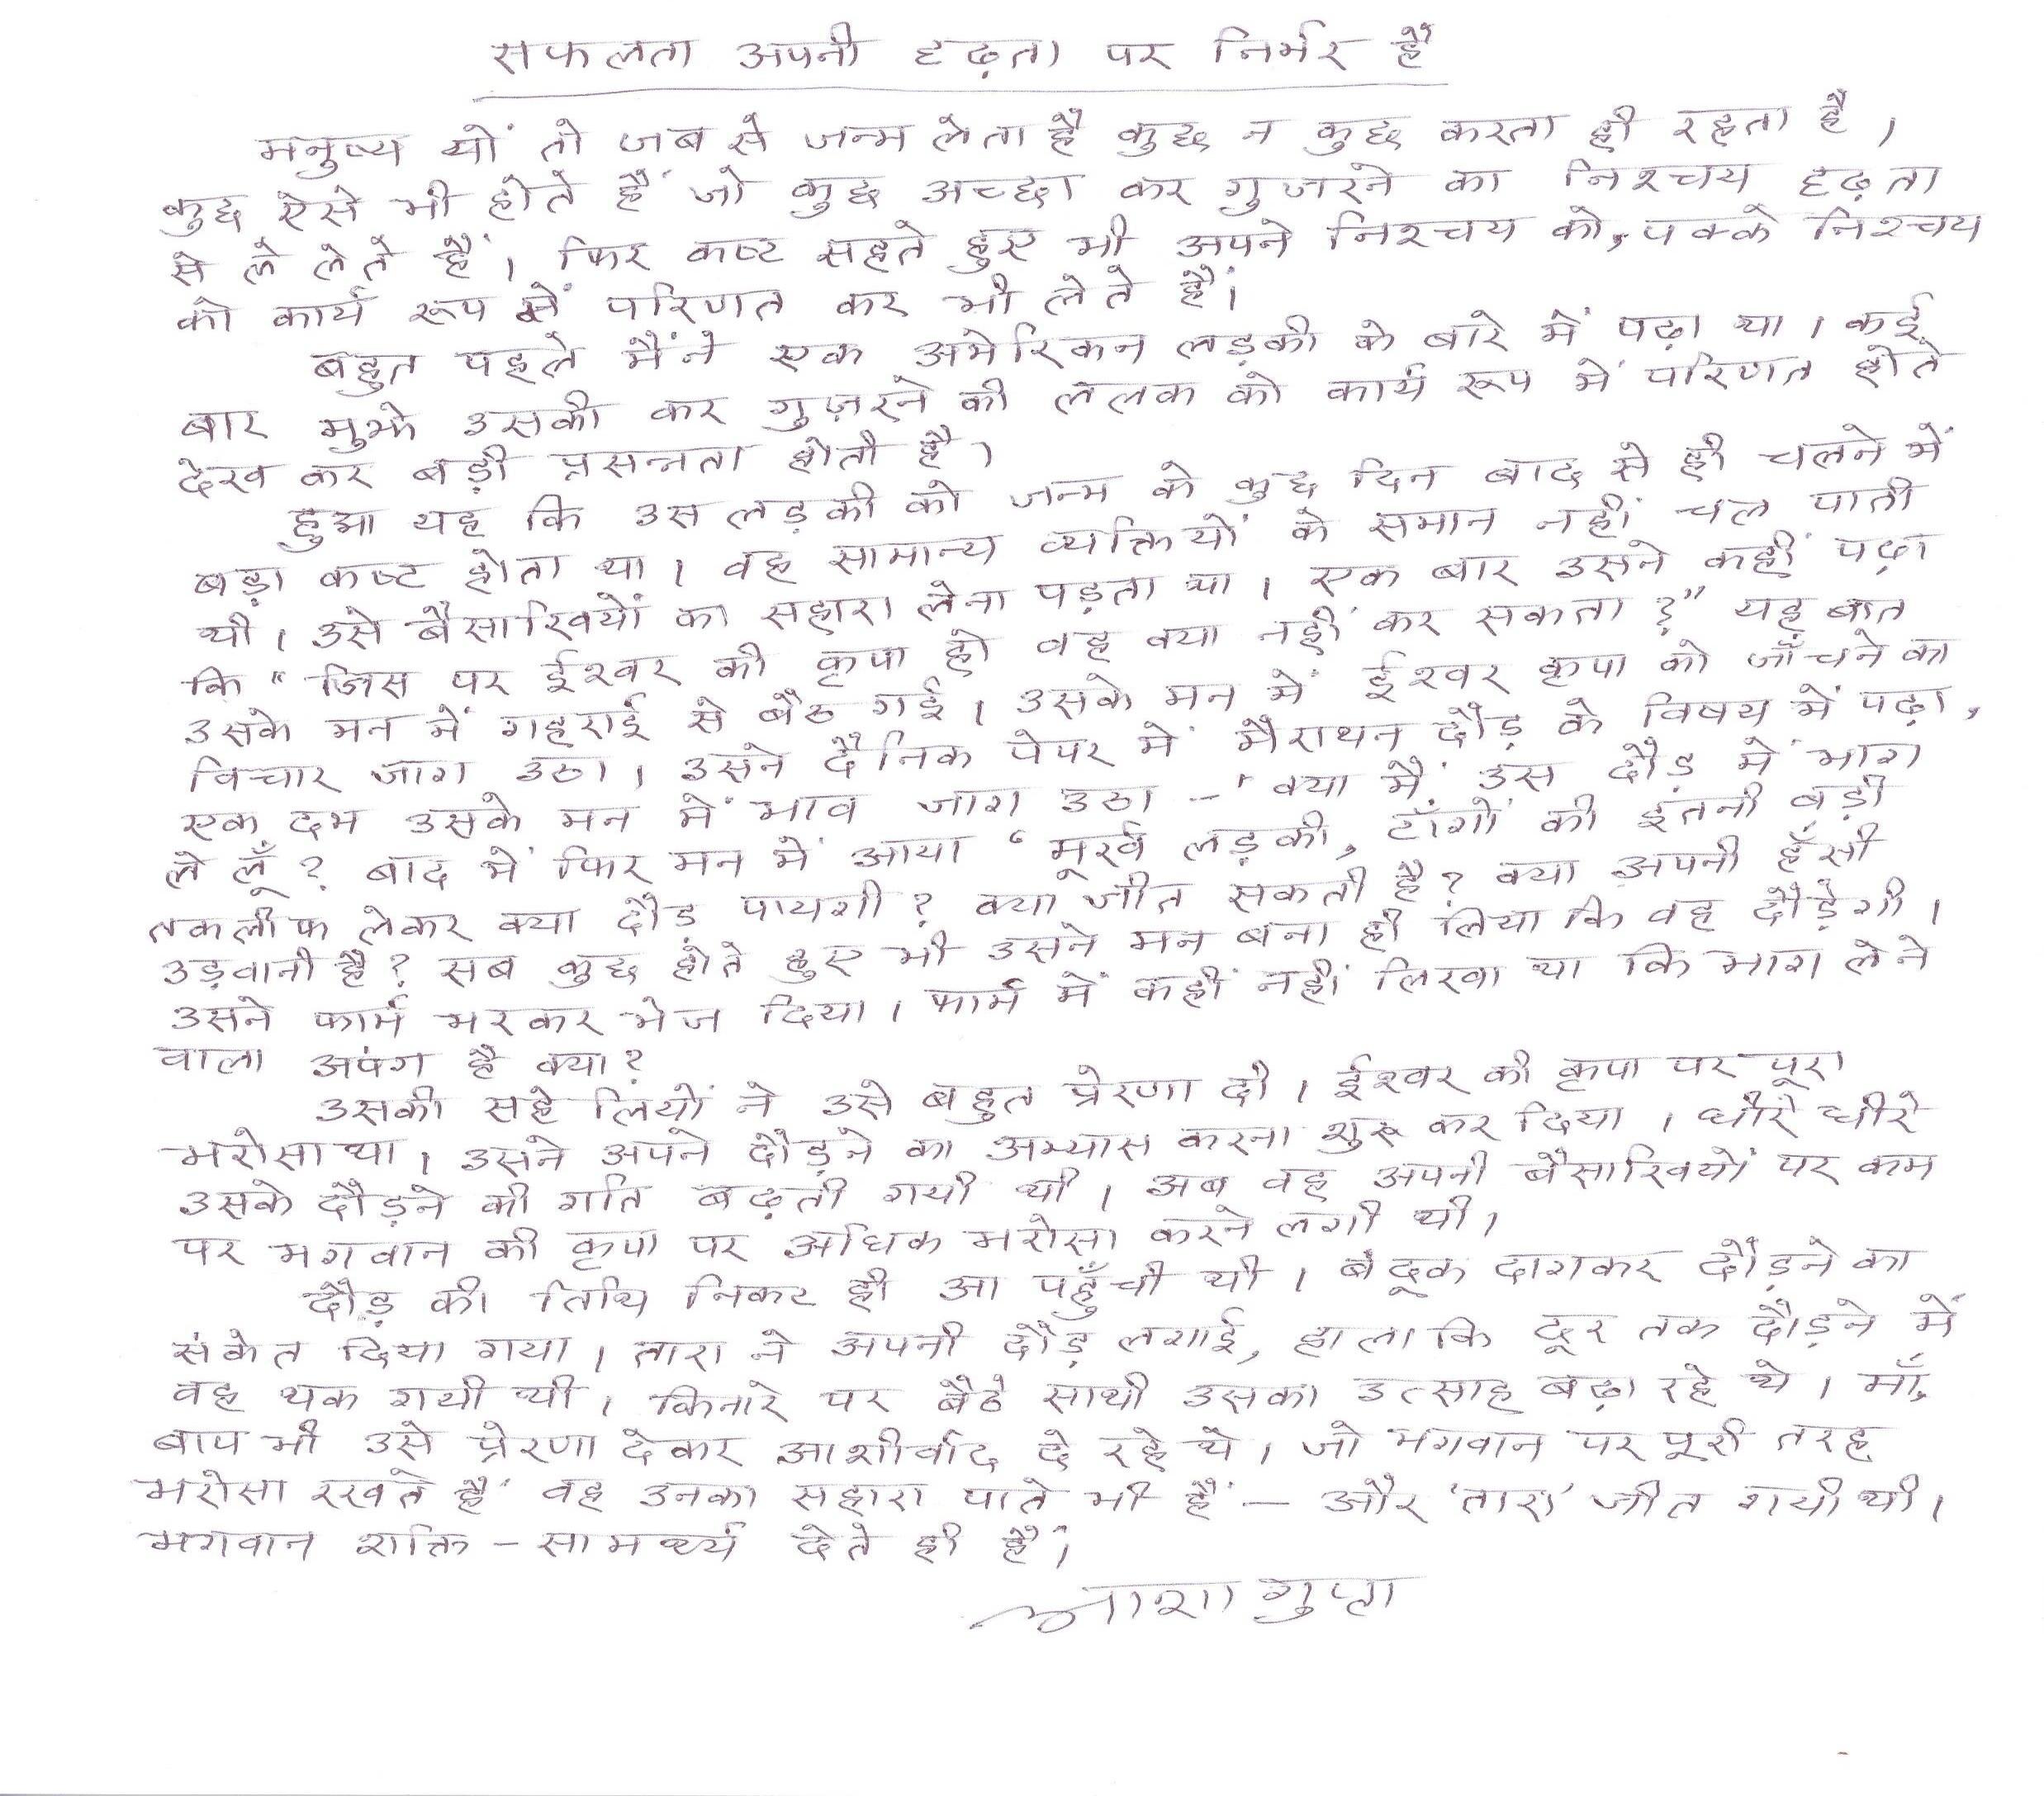 सफलता अपनी दृढ़ता पर निर्भर है
मनुष्य यों तो जब से जन्म लेता है कुछ न कुछ करता ही रहता है ,
कुछ ऐसे भी होते हैं जो कुछ अच्छा कर गुजरने का निश्चय दृढ़ता
से ले लेते हैं । फिर कष्ट सहते हुए भी अपने निश्चय को, पक्के निश्चय
को कार्य रूप में परिणत कर भी लेते हैं ।
बहुत पहले मैंने एक अमेरिकन लड़की के बारे में पढ़ा था । कई
बार मुझे उसकी कर गुज़रने की ललक को कार्य रूप में परिणत होते
देख कर बड़ी प्रसन्नता होती है ।
हुआ यह कि उस लड़की को जन्म के कुछ दिन बाद से ही चलने में
बड़ा कष्ट होता था । वह सामान्य व्यक्तियों के समान नहीं चल पाती
थी । उसे बैसाखियों का सहारा लेना पड़ता था । एक बार उसने कहीं पढ़ा
कि " जिस पर ईश्वर की कृपा हो वह क्या नहीं कर सकता ?" यह बात
उसके मन में गहराई से बैठ गई । उसके मन में ईश्वर कृपा को जाँचने का
विचार जाग उठा । उसने दैनिक पेपर में मैराथन दौड़ के विषय में पढ़ा ,
एक दम उसके मन में भाव जाग उठा — ' क्या मैं उस दौड़ में भाग
ले लूँ ? बाद में फिर मन में आया ' मूर्ख लड़की, टाँगों की इतनी बड़ी
तकलीफ लेकर क्या दौड़ पायगी ? क्या जीत सकती है ? क्या अपनी हँसी
उड़वानी है ? सब कुछ होते हुए भी उसने मन बना ही लिया कि वह दौड़ेगी ।
उसने फार्म भरकर भेज दिया । फार्म में कहीं नहीं लिखा था कि भाग लेने
वाला अपंग है क्या ?
उसकी सहेलियों ने उसे बहुत प्रेरणा दी । ईश्वर की कृपा पर पूरा
भरोसा था । उसने अपने दौड़ने का अभ्यास करना शुरू कर दिया । धीरे धीरे
उसके दौड़ने की गति बढ़ती गयी थी । अब वह अपनी बैसाखियों पर कम
पर भगवान की कृपा पर अधिक भरोसा करने लगी थी ।
दौड़ की तिथि निकट ही आ पहुँची थी । बंदूक दागकर दौड़ने का
संकेत दिया गया । तारा ने अपनी दौड़ लगाई, हालाकि दूर तक दौड़ने में
वह थक गयी थी । किनारे पर बैठे साथी उसका उत्साह बढ़ा रहे थे । माँ,
बाप भी उसे प्रेरणा देकर आशीर्वाद दे रहे थे । जो भगवान पर पूरी तरह
भरोसा रखते हैं वह उनका सहारा पाते भी हैं — और 'तारा' जीत गयी थी ।
भगवान शक्ति - सामर्थ्य देते ही हैं ।
आशा गुप्ता